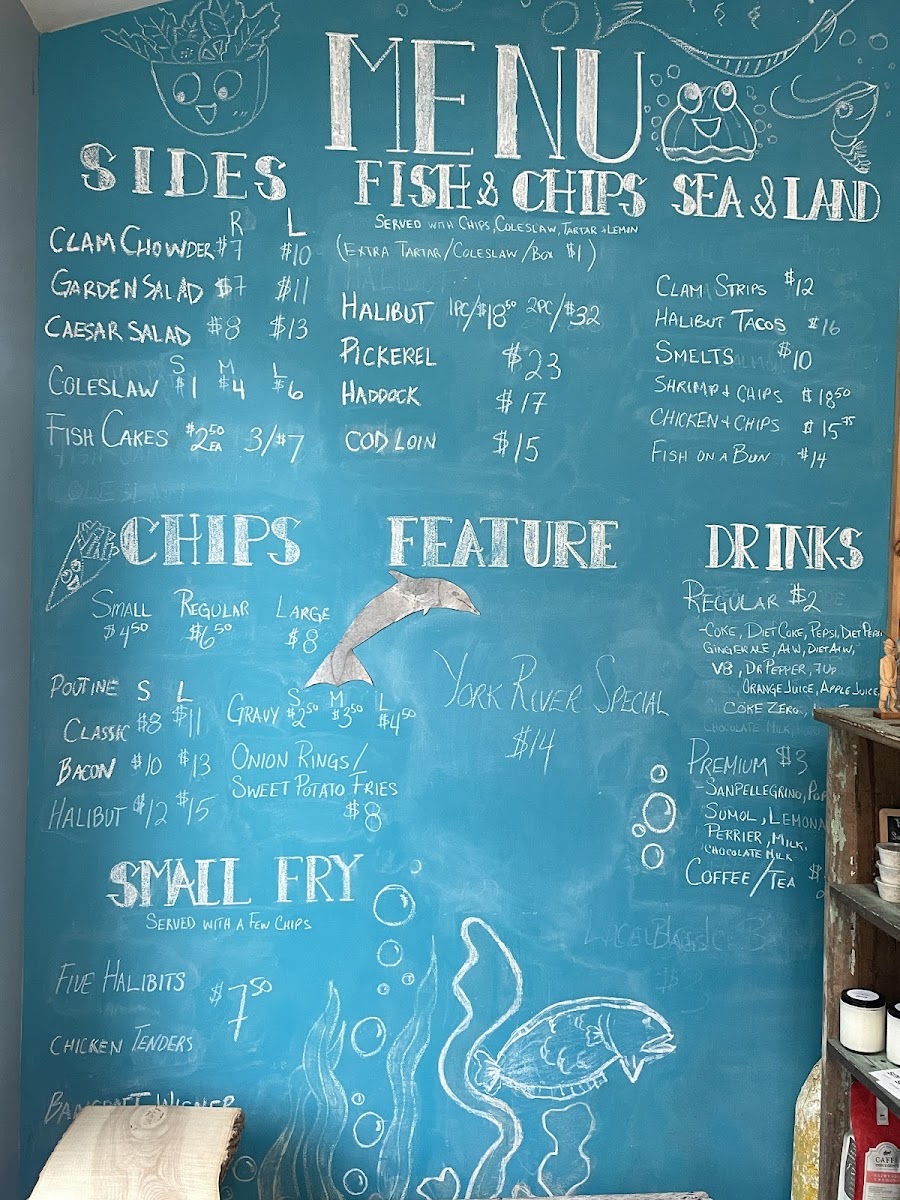 MENU
SIDES
R L
CLAM CHOWDER $7 $10
GARDEN SALAD $7 $11
CAESAR SALAD $8 $13
S M L
COLESLAW $1 $4 $6
FISH CAKES $2.50 EA 3/$7
FISH & CHIPS
SERVED WITH CHIPS, COLESLAW, TARTAR & LEMON
(EXTRA TARTAR/COLESLAW/BOX $1)
HALIBUT 1PC/$18.50 2PC/$32
PICKEREL $23
HADDOCK $17
COD LOIN $15
SEA & LAND
CLAM STRIPS $12
HALIBUT TACOS $16
SMELTS $10
SHRIMP & CHIPS $18.50
CHICKEN & CHIPS $15.75
FISH ON A BUN $14
CHIPS
SMALL REGULAR LARGE
$4.50 $6.50 $8
POUTINE S L
CLASSIC $8 $11
BACON $10 $13
HALIBUT $12 $15
S M L
GRAVY $2.50 $3.50 $4.50
ONION RINGS/
SWEET POTATO FRIES
$8
FEATURE
YORK RIVER SPECIAL
$14
DRINKS
REGULAR $2
-COKE, DIET COKE, PEPSI, DIET PEPSI
GINGERALE, A&W, DIET A&W,
V8, DR PEPPER, 7UP,
ORANGE JUICE, APPLE JUICE,
COKE ZERO,
CHOCOLATE MILK
PREMIUM $3
-SANPELLEGRINO,
SUMOL, LEMONA
PERRIER, MILK,
CHOCOLATE MILK
COFFEE/TEA $
SMALL FRY
SERVED WITH A FEW CHIPS
FIVE HALIBITS
$7.50
CHICKEN TENDERS
BANCROFT WIENER
CAFFE